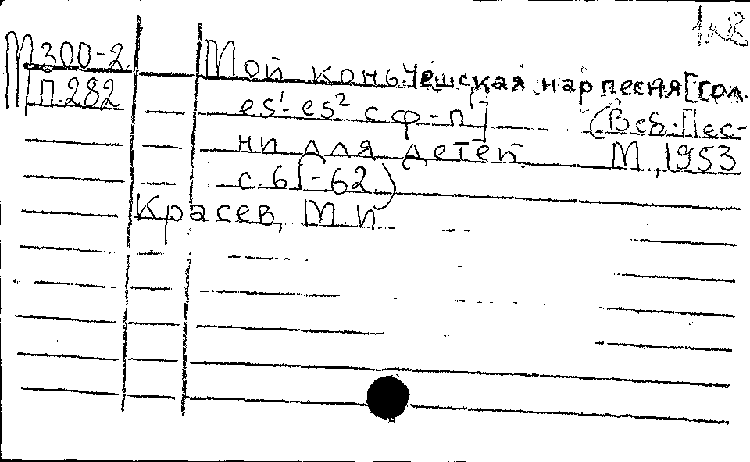 1л8
М300-2 Мой конь. Чешская нар песня [сол.
П.282 es¹-es² с ф-п] (В сб: Пес-
ни для детей. М., 1953
с. 61-62)
Красев, М И